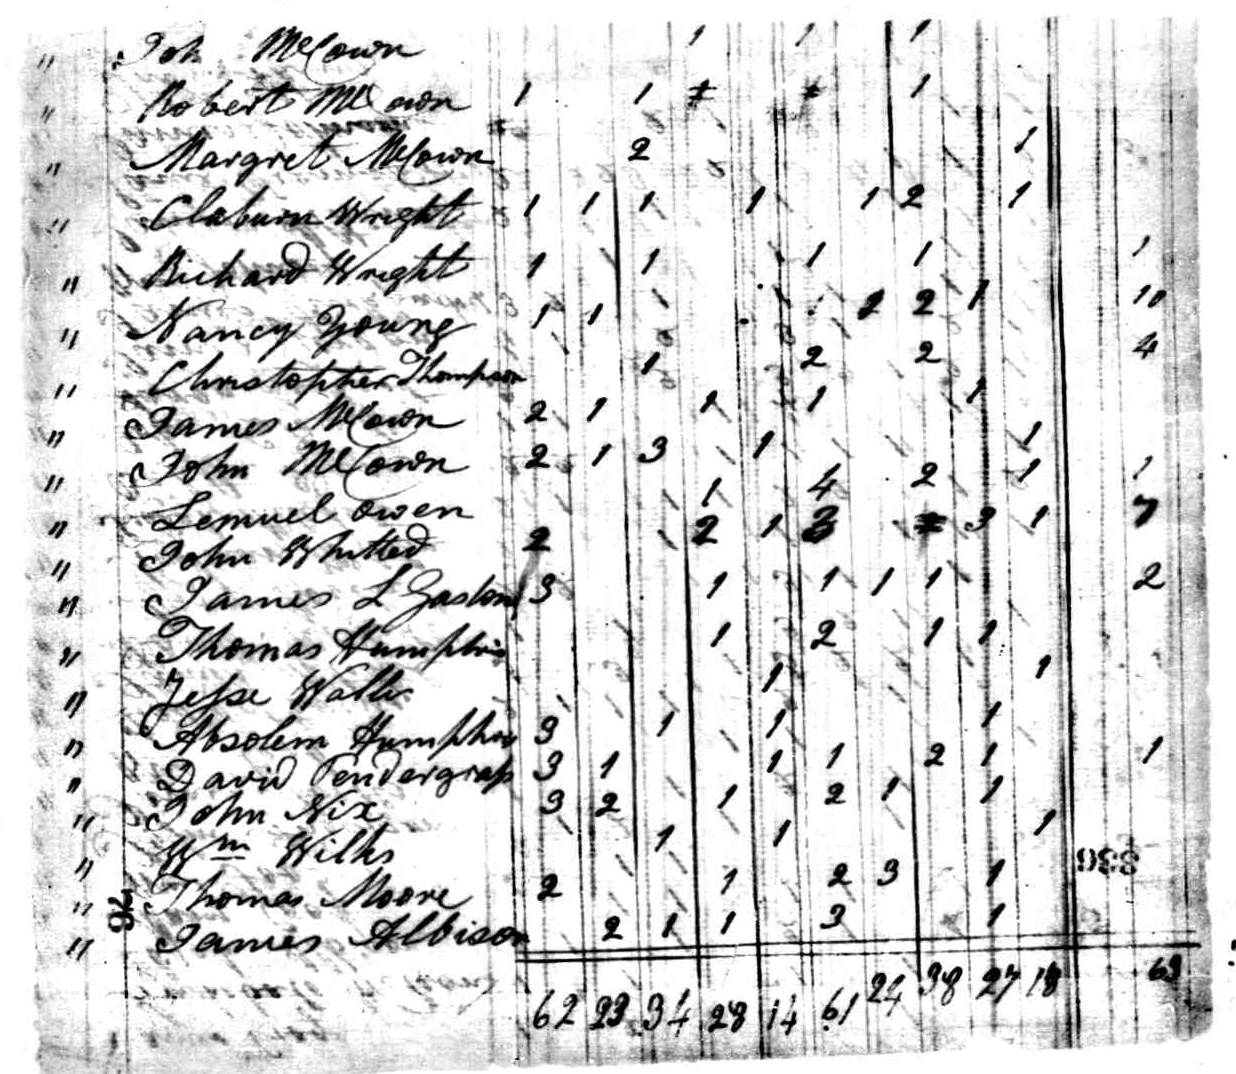 " Joh McCown 1 1 1
" Robert McCown 1 1 1
" Margret McCown 2 1
" Claburn Wright 1 1 1 1 1 2 1
" Richard Wright 1 1 1 1 1
" Nancy Young 1 1 2 2 1 10
" Christopher Thompson 1 2 2 4
" James McCown 2 1 1 1 1
" John McCown 2 1 3 1 1
" Lemuel Owen 1 4 2 1 1
" John Whitted 2 2 1 3 3 1 7
" James L Gaston 3 1 1 1 1 2
" Thomas Humphris 1 2 1 1
" Jesse Walls 1 1
" Absolem Humphris 3 1 1 1
" David Pendergrass 3 1 1 1 2 1 1
" John Nix 3 2 1 2 1 1
" Wm Wilks 1 1 1
" Thomas Moore 2 1 2 3 1
" James Albison 2 1 1 3 1
62 23 34 28 14 61 24 38 27 18 63
338
76